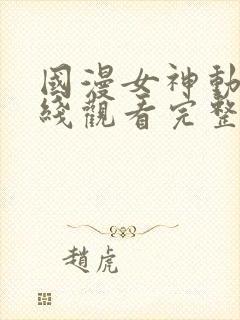 國漫女神動
綫觀看完整
趙虎